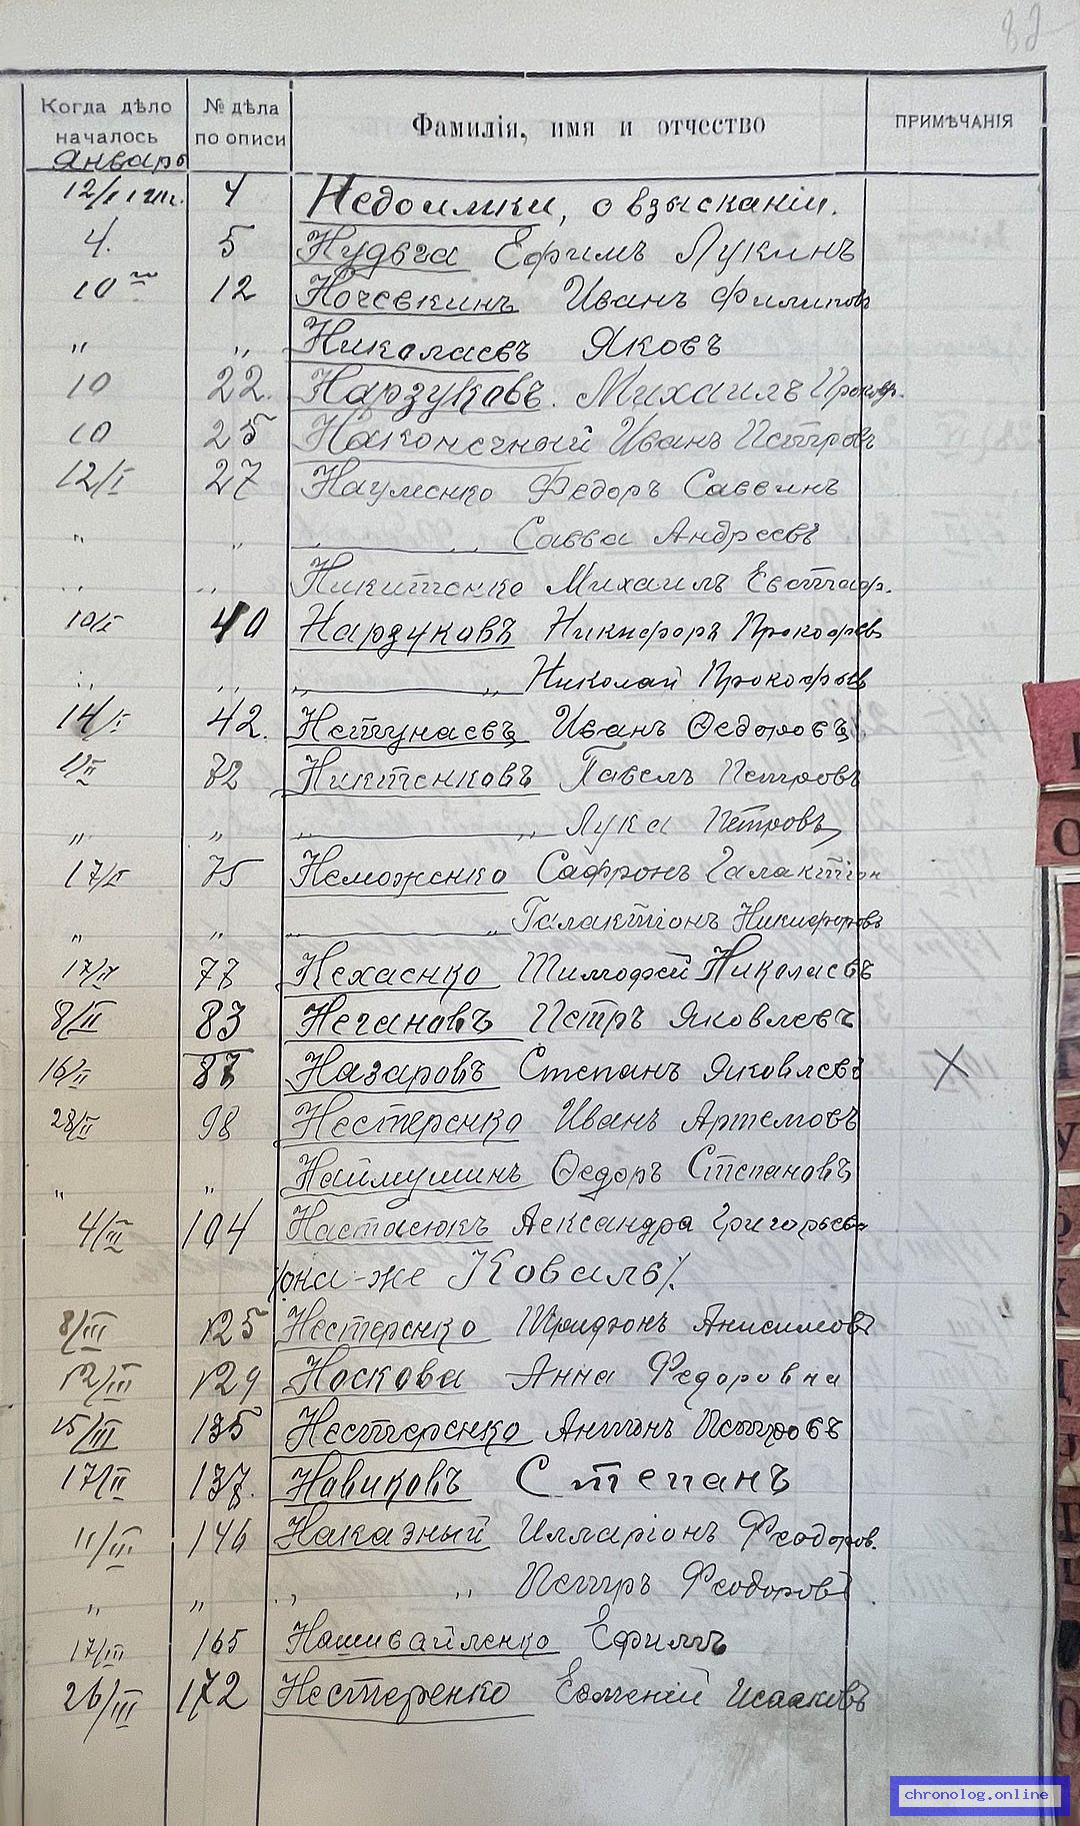 82
Когда дѣло началось № дѣла по описи Фамилія, имя и отчество ПРИМѢЧАНІЯ
Январь
4 Недоимки, о взысканіи.
4. 5 Нудьга Ефимъ Лукинъ
10 12 Ночевкинъ Иванъ Филипов
" " Николаевъ Яковъ
10 22. Нарзуковъ. Михаилъ Прокоф.
10 25 Наконечный Иванъ Петровъ
12/I 27 Науменко Федоръ Саввинъ
" " " " Савва Андреевъ
" " Никитенко Михаилъ Евстаф.
10/I 40 Нардуковъ Никифоръ Прокофьев
" " " " Николай Прокофьев
14/I 42. Нетунаевъ Иванъ Ѳедоровъ
72 Никтенковъ Павелъ Петровъ
" " " " Лука Петровъ
17/II 75 Неможенко Сафронъ Галактіон
" " " Галактіонъ Никифоровъ
17/II 77 Нехаенко Тимофей Николаевъ
8/II 83 Негановъ Петръ Яковлевъ
16/II 87 Назаровъ Степанъ Яковлевъ X
28/II 98 Нестеренко Иванъ Артемовъ
" " Наймушинъ Ѳедоръ Степановъ
4/III 104 Настасюкъ Александра Григорьева
/она-же Коваль/.
8/III 125 Нестеренко Спиридонъ Анисимовъ
12/III 129 Носкова Анна Федоровна
15/III 135 Нестеренко Антонъ Петровъ
17/II 137. Новиковъ Степанъ
11/III 146 Наказный Илларіонъ Феодоров.
" " " " Петръ Феодоровъ
17/III 165 Нашивайленко Ефимъ
26/III 172 Нестеренко Евменій Исааковъ
chronolog.online